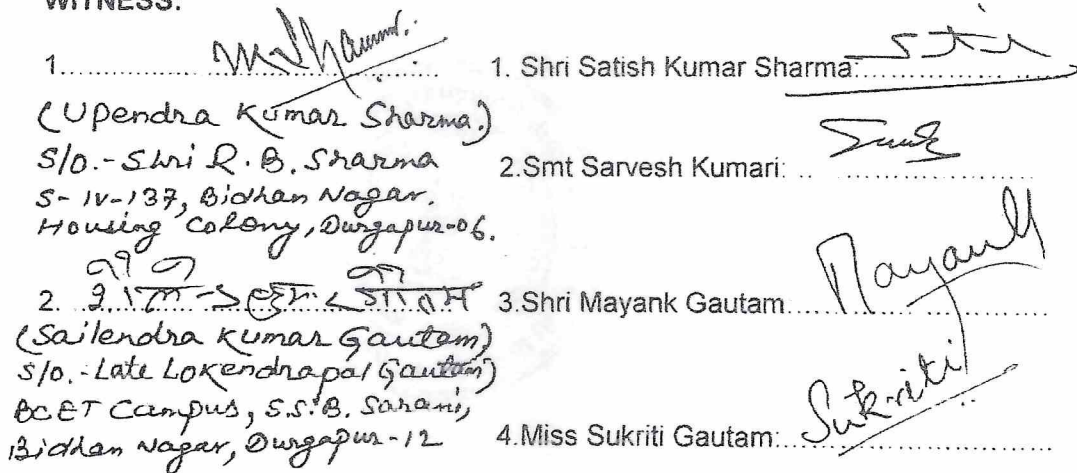 WITNESS:
1. 
(Upendra Kumar Sharma.)
S/o.- Shri R. B. Sharma
S-IV-137, Bidhan Nagar.
Housing Colony, Durgapur-06.
2. 
(Sailendra Kumar Gautam)
S/o.- Late Lokendrapal Gautam)
BCET Campus, S.S.B. Sarani,
Bidhan Nagar, Durgapur-12
1. Shri Satish Kumar Sharma:
2.Smt Sarvesh Kumari:
3.Shri Mayank Gautam Mayank
4.Miss Sukriti Gautam: Sukriti